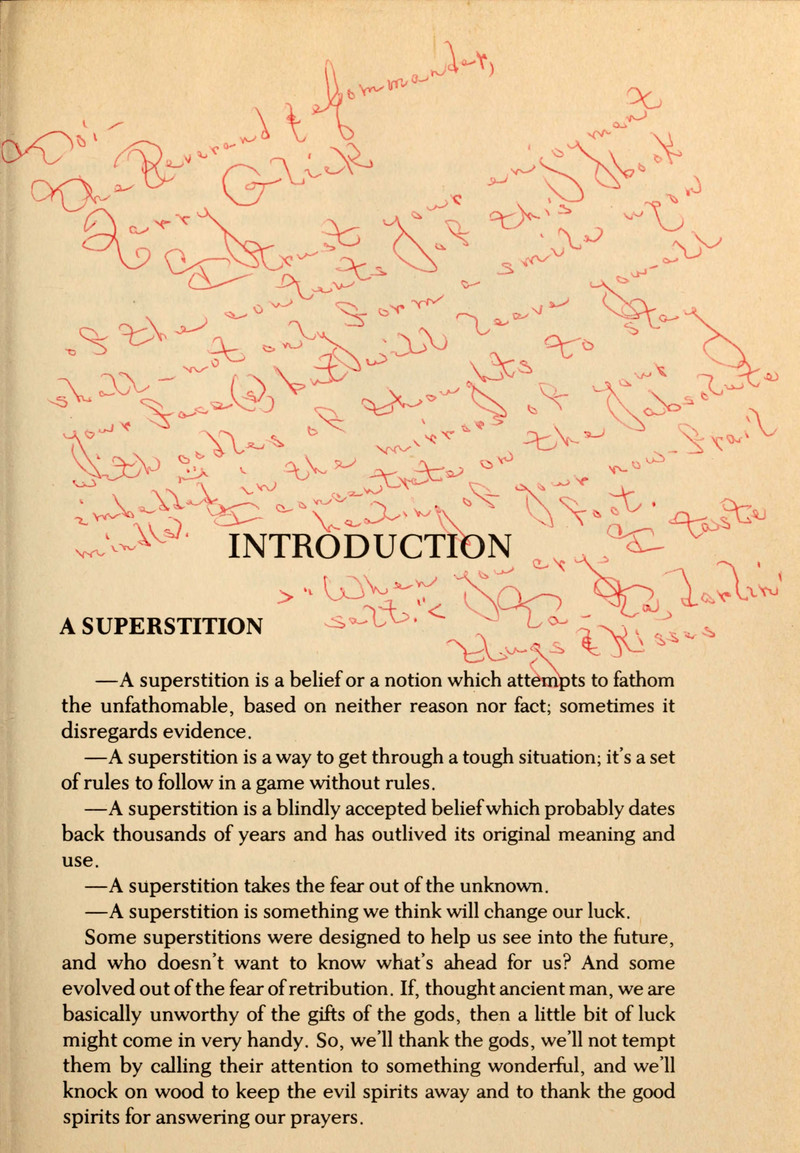 INTRODUCTION
A SUPERSTITION
—A superstition is a belief or a notion which attempts to fathom
the unfathomable, based on neither reason nor fact; sometimes it
disregards evidence.
—A superstition is a way to get through a tough situation; it's a set
of rules to follow in a game without rules.
—A superstition is a blindly accepted belief which probably dates
back thousands of years and has outlived its original meaning and
use.
—A superstition takes the fear out of the unknown.
—A superstition is something we think will change our luck.
Some superstitions were designed to help us see into the future,
and who doesn't want to know what's ahead for us? And some
evolved out of the fear of retribution. If, thought ancient man, we are
basically unworthy of the gifts of the gods, then a little bit of luck
might come in very handy. So, we'll thank the gods, we'll not tempt
them by calling their attention to something wonderful, and we'll
knock on wood to keep the evil spirits away and to thank the good
spirits for answering our prayers.